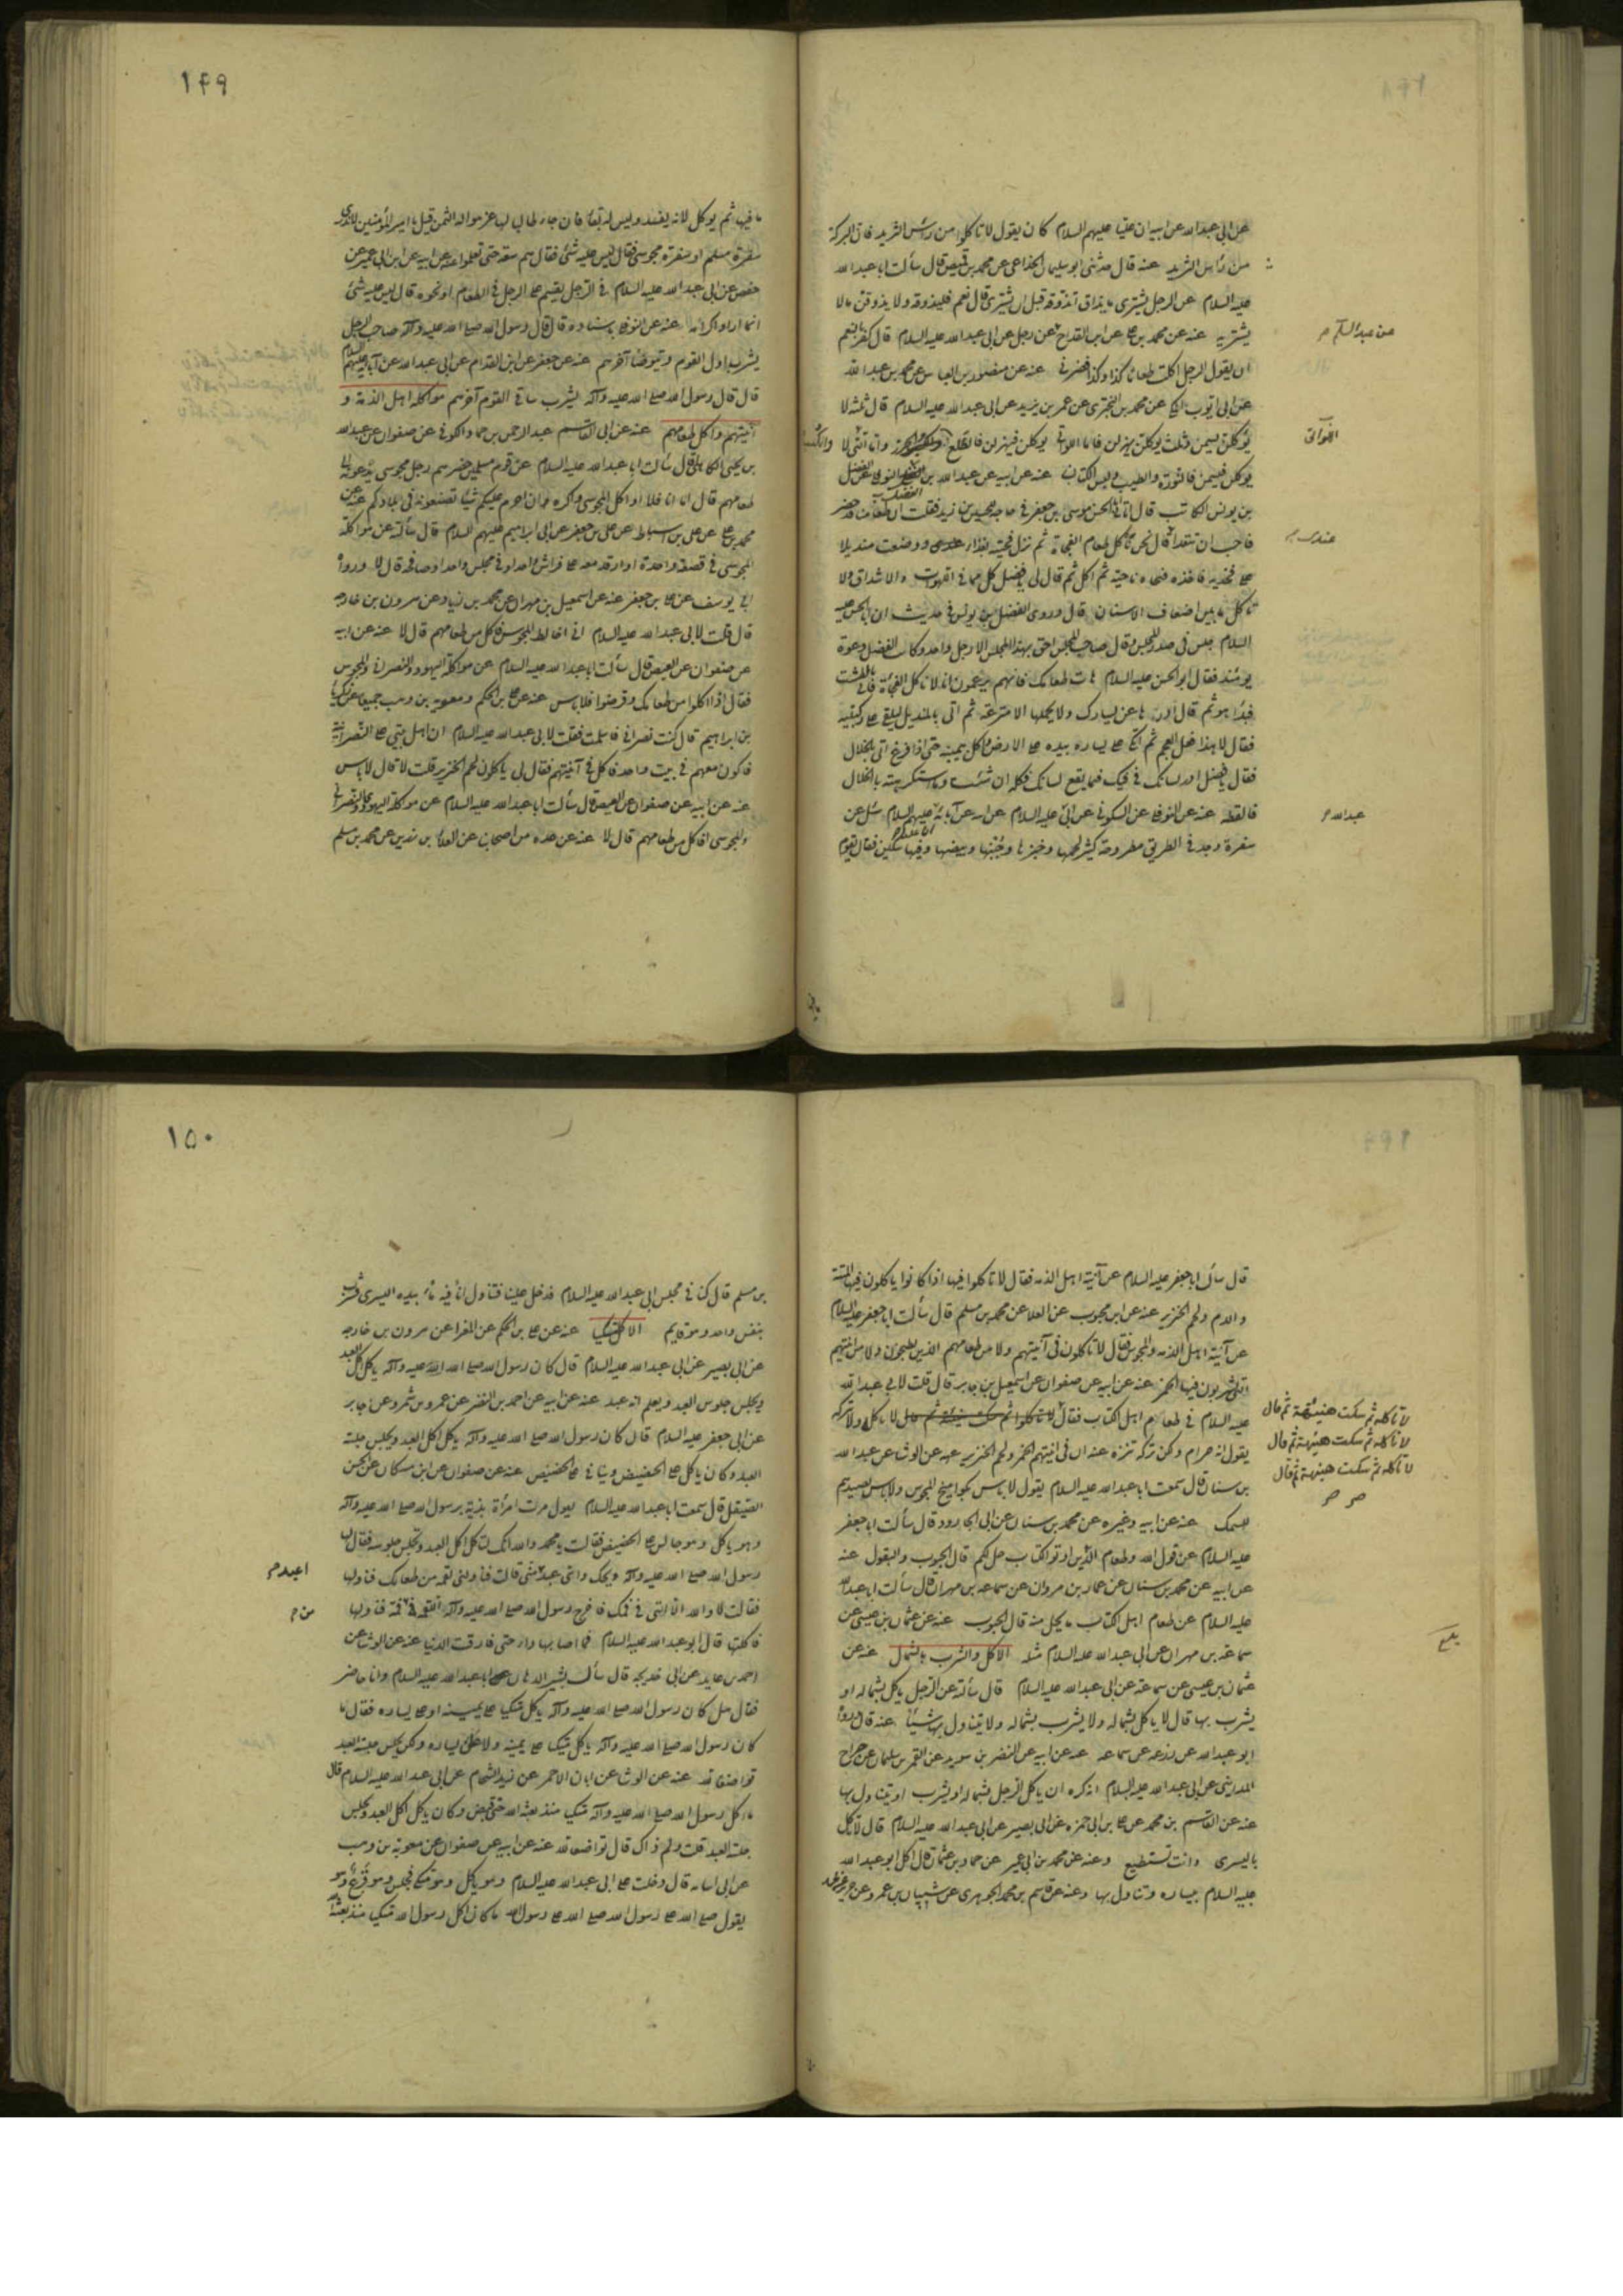 ١٤٩
عن ابى عبد الله عن ابيه ان عليا عليهم السلام كان يقول لا تاكلوا من رأس الثريد فان البركة
من رأس الثريد عنه قال حدثنى ابو سليمان الحذاء عن محمد بن فيض قال سألت ابا عبد الله
عليه السلام عن الرجل يشترى ما يذاق ايذوقه قبل ان يشترى قال نعم فليذوقه ولا يذوقن ما لا
يشتريه عنه عن محمد بن على عن ابن القداح عن رجل عن ابى عبد الله عليه السلام قال كفر بالنعم
ان يقول الرجل اكلت طعام كذا وكذا فضرنى عنه عن منصور بن العباس عن محمد بن عبد الله
عن ابى ايوب عن محمد بن البخترى عن عمر بن يزيد عن ابى عبد الله عليه السلام قال ثلثه لا
يؤكلن فيسمن فالنورة والطيب ولبس الكتان عنه عن ابيه عن عبد الله بن الفضل النوفلى عن الفضل
بن يونس الكاتب قال اتانى ابو الحسن موسى بن جعفر فى حاجة للحسين بن زيد فقلت ان طعامنا قد حضر
فاحب ان تتغدا قال نحن نأكل طعام الفجاءة ثم نزل فجئته بغداء ووضعت منديلا
على فخذيه فاخذه فنحاه ناحية ثم اكل ثم قال لى يا فضل كل مما فى اللهوات والاشداق ولا
تاكل ما بين اضعاف الاسنان قال وروى الفضل بن يونس فى حديث ان ابا الحسن عليه
السلام جلس فى صدر المجلس وقال صاحب المجلس احق بهذا المجلس الا رجل واحد وكانت لفضل دعوة
يومئذ فقال ابو الحسن عليه السلام هات طعامك فانهم يزعمون انا لا ناكل الفجاءة فاتى بالطشت
فبدا هو ثم قال ادرها عن يسارك ولا يحملها الا مترعة ثم اتى بالمنديل ليلقى على ركبتيه
فقال لا هذا فعل العجم ثم اتكى على يساره بيده على الارض واكل بيمينه حتى اذا فرغ اتى بالخلال
فقال يا فضل ادر لسانك فى فيك فما يقع لسانك فكله ان شئت وما استكرهته بالخلال
فالفظه عنه عن النوفلى عن السكونى عن ابى عليه السلام عن ابيه عن آبائه عليهم السلام سئل عن
سفرة وجدت فى الطريق مطروحة كثير لحمها وخبزها وجبنها وبيضها وفيها سكين فقال يقوم
عن عبد السلام
اللواتى
عندى
عبد الله
ما فيها ثم يوكل لانه يفسد وليس له بقاء فان جاء طالب لها غرموا له الثمن قيل يا امير المؤمنين لا ندرى
سفرة مسلم او سفرة مجوسى فقال ليس عليه شئ فقال هم فى سعة حتى تعلموا عنه عن ابيه عن ابن ابى عمير عن
حفص عن ابى عبد الله عليه السلام فى الرجل يقسم على الرجل فى الطعام او نحوه قال ليس عليه شئ
انما اراد اكرامه عنه عن النوفلى باسناده قال قال رسول الله صلى الله عليه وآله صاحب الرجل
يشرب اول القوم ويتوضأ آخرهم عنه عن جعفر عن ابن القداح عن ابى عبد الله عن آبائه عليهم السلام
قال قال رسول الله صلى الله عليه وآله ليشرب ساقى القوم آخرهم مواكلة اهل الذمة و
آنيتهم واكل طعامهم عنه عن ابى القاسم عبد الرحمن بن حماد الكوفى عن صفوان عن عبد الله
بن يحيى الكاهلى قال سألت ابا عبد الله عليه السلام عن قوم مسلمين حضرهم رجل مجوسى يدعونه الى
طعامهم قال اما انا فلا اواكل المجوسى واكره ان احرم عليكم شيئا تصنعونه فى بلادكم عنه عن
محمد بن على عن على بن اسباط عن على بن جعفر عن ابى ابراهيم عليهم السلام قال سألته عن مواكلة
المجوسى فى قصعة واحدة او ارقد معه على فراش واحد او فى مجلس واحد او صافحه قال لا ورواه
ابى يوسف عن على بن جعفر عنه عن اسمعيل بن مهران عن محمد بن زياد عن هرون بن خارجه
قال قلت لابى عبد الله عليه السلام انى اخالط المجوس فآكل من طعامهم قال لا عنه عن ابيه
عن صفوان عن العيص قال سألت ابا عبد الله عليه السلام عن مواكلة اليهود والنصرانى والمجوس
فقال اذا اكلوا من طعامك وتوضؤا فلا باس عنه عن على بن الحكم ومعوية بن وهب جميعا عن زكريا
بن ابراهيم قال كنت نصرانى فاسلمت فقلت لابى عبد الله عليه السلام ان اهل بيتى على النصرانية
فاكون معهم فى بيت واحد فاكل فى آنيتهم فقال لى ياكلون لحم الخنزير قلت لا قال لا باس
عنه عن ابيه عن صفوان عن العيص قال سألت ابا عبد الله عليه السلام عن مواكلة اليهودى والنصرانى
والمجوسى افاكل من طعامهم قال لا عنه عن عده من اصحابنا عن العلاء بن رزين عن محمد بن مسلم
١٥٠
قال سألت ابا جعفر عليه السلام عن آنية اهل الذمه فقال لا تاكلوا فيها اذا كانوا ياكلون فيها الميتة
والدم ولحم الخنزير عنه عن ابن محبوب عن العلا عن محمد بن مسلم قال سألت ابا جعفر عليه السلام
عن آنية اهل الذمه والمجوس فقال لا تاكلون فى آنيتهم ولا من طعامهم الذين يطبخون ولا من آنيتهم
التى يشربون فيها الخمر عنه عن ابيه عن صفوان عن اسمعيل بن جابر قال قلت لابى عبد الله
عليه السلام فى طعام اهل الكتاب فقال لا تاكلوا ثم سكت هنيئة ثم قال لا تاكله ولا تتركه
يقول انه حرام ولكن تركه تنزه عنه ان فى انيتهم الخمر ولحم الخنزير عنه عن الوشاء عن عبد الله
بن سنان قال سمعت ابا عبد الله عليه السلام يقول لا باس بكواميخ المجوس ولا باس بصيدهم
للسمك عنه عن ابيه وغيره عن محمد بن سنان عن ابى الجارود قال سألت ابا جعفر
عليه السلام عن قول الله وطعام الذين اوتوا الكتاب حل لكم قال الحبوب والبقول عنه
عن ابيه عن محمد بن سنان عن عمار بن مروان عن سماعه بن مهران قال سألت ابا عبد الله
عليه السلام عن طعام اهل الكتاب ما يحل منه قال الحبوب عنه عن عثمان بن عيسى عن
سماعة بن مهران عن ابى عبد الله عليه السلام مثله الاكل والشرب بالشمال عنه عن
عثمان بن عيسى عن سماعة عن ابى عبد الله عليه السلام قال سألته عن الرجل ياكل بشماله او
يشرب بها قال لا ياكل بشماله ولا يشرب بشماله ولا يتناول بها شيئا عنه قال ورواه
ابو عبد الله عن زرعه عن سماعه عنه عن ابيه عن النضر بن سويد عن القسم بن سليمان عن جراح
المداينى عن ابى عبد الله عليه السلام انه كره ان ياكل الرجل بشماله او يشرب او يتناول بها
عنه عن القاسم بن محمد عن على بن ابى حمزه عن ابى بصير عن ابى عبد الله عليه السلام قال لا تاكل
باليسرى وانت تستطيع وعنه عن محمد بن ابى عمير عن حماد بن عثمان قال اكل ابو عبد الله
عليه السلام بيساره وتناول بها وعنه عن قاسم بن محمد الجوهرى عن شيبان بن عمرو عن حريز عن محمد
لا تاكله ثم سكت هنيهة ثم قال
لا تاكله ثم سكت هنيهة ثم قال
لا تاكله ثم سكت هنيهة ثم قال
بن مسلم قال كنا فى مجلس ابى عبد الله عليه السلام فدخل علينا فتناول اناء فيه ماء بيده اليسرى فشرب
بنفس واحد وهو قايم الاكل متكيا عنه عن على بن الحكم عن المغرا عن هرون بن خارجه
عن ابى بصير عن ابى عبد الله عليه السلام قال كان رسول الله صلى الله عليه وآله ياكل اكل العبد
ويجلس جلوس العبد ويعلم انه عبد عنه عن ابيه عن احمد بن النضر عن عمرو بن شمر وعن جابر
عن ابى جعفر عليه السلام قال كان رسول الله صلى الله عليه وآله ياكل اكل العبد ويجلس جلسة
العبد وكان ياكل على الحضيض وينام على الحضيض عنه عن صفوان عن ابن مسكان عن الحسن
الصيقل قال سمعت ابا عبد الله عليه السلام يقول مرت امرأة بذية برسول الله صلى الله عليه وآله
وهو ياكل وهو جالس على الحضيض فقالت يا محمد والله انك لتاكل اكل العبد وتجلس جلوسه فقال لها
رسول الله صلى الله عليه وآله ويحك واى عبد منى قالت فناولنى لقمه من طعامك فناولها
فقالت لا والله الا التى فى فمك فاخرج رسول الله صلى الله عليه وآله اللقمة من فمه فناولها
فاكلتها قال ابو عبد الله عليه السلام فما اصابها داء حتى فارقت الدنيا عنه عن الوشاء عن
احمد بن عايد عن ابى خديجه قال سأل بشير الدهان ابا عبد الله عليه السلام وانا حاضر
فقال هل كان رسول الله صلى الله عليه وآله ياكل متكيا على يمينه او على يساره فقال ما
كان رسول الله صلى الله عليه وآله ياكل متكيا على يمينه ولا على يساره ولكن يجلس جلسة العبد
تواضعا لله عنه عن الوشاء عن ابان الاحمر عن زيد الشحام عن ابى عبد الله عليه السلام قال
ما اكل رسول الله صلى الله عليه وآله متكيا منذ بعثه الله حتى قبض وكان ياكل اكل العبد ويجلس
جلسة العبد قلت ولم ذاك قال تواضعا لله عنه عن ابيه عن صفوان عن معوية بن وهب
عن ابى اسامه قال دخلت على ابى عبد الله عليه السلام وهو ياكل وهو متكئ فجلس وهو فزع وهو
يقول صلى الله على رسول الله صلى الله على رسول الله ما كان اكل رسول الله متكيا منذ بعثه الله
اعبد
من